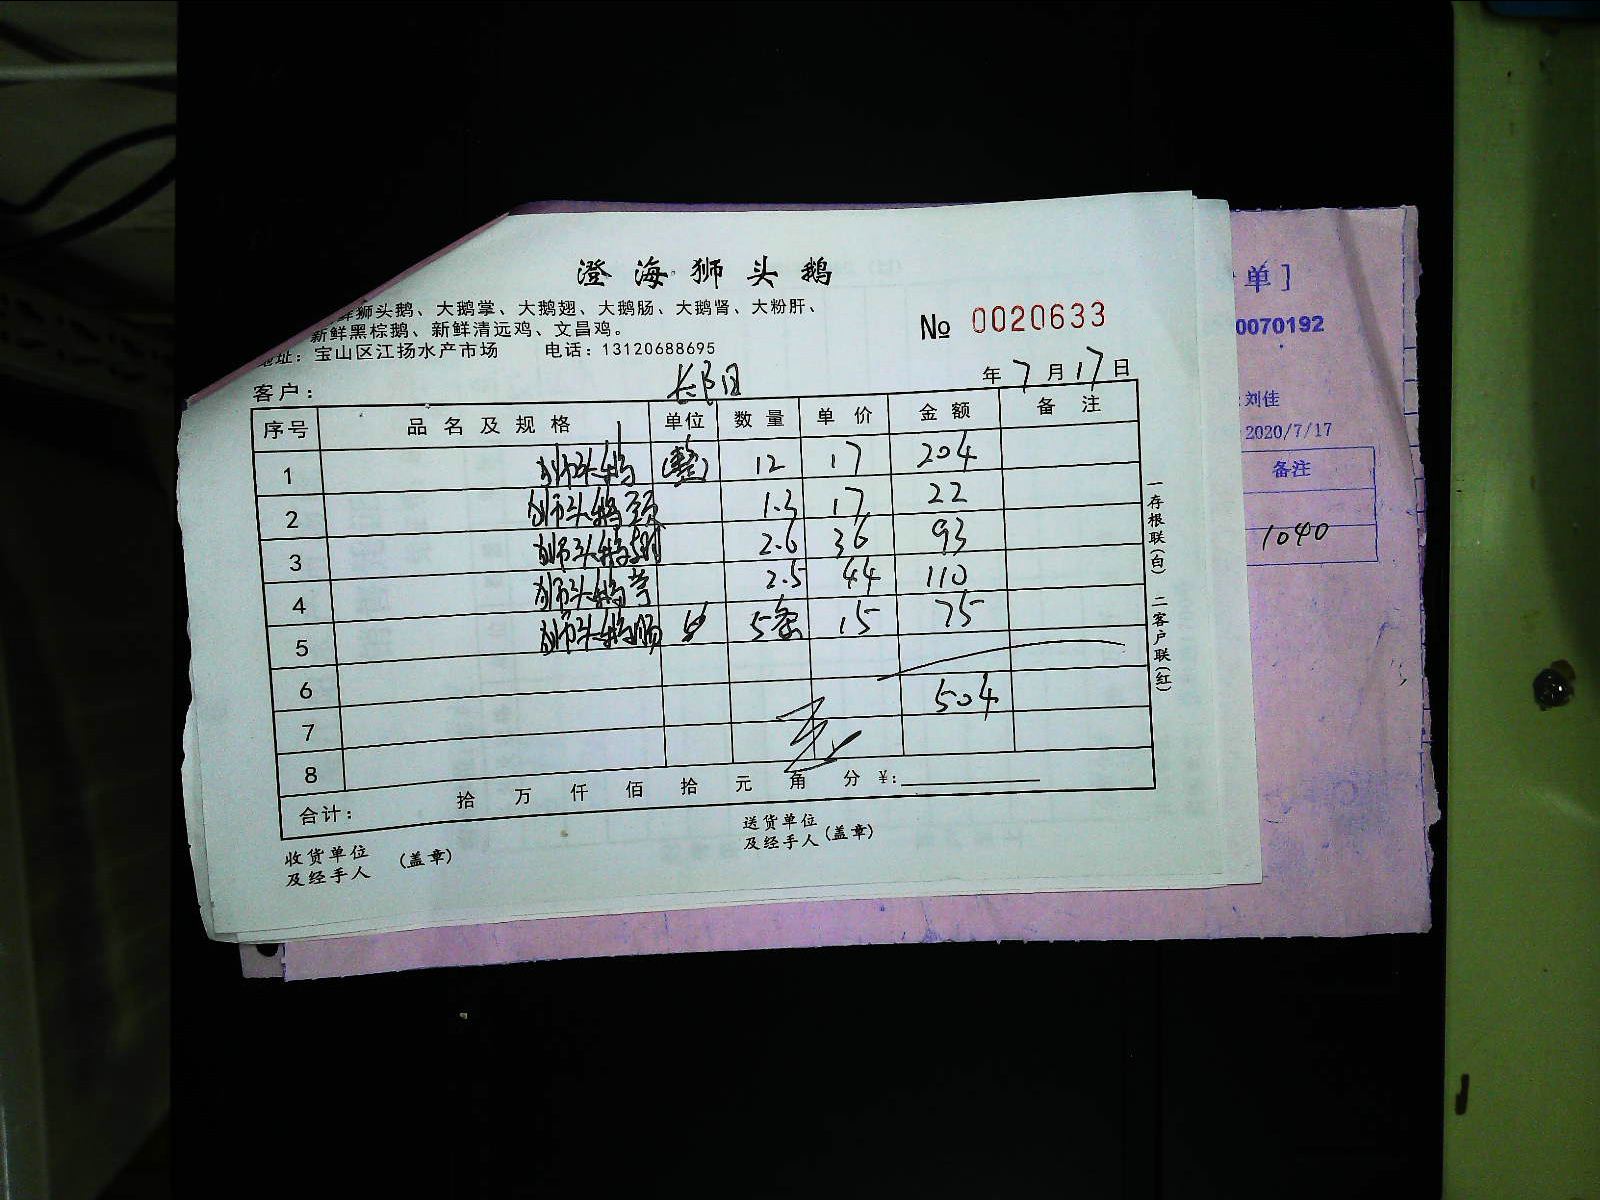 澄海狮头鹅
鲜狮头鹅、大鹅掌、大鹅翅、大鹅肠、大鹅肾、大粉肝、
新鲜黑棕鹅、新鲜清远鸡、文昌鸡。
地址：宝山区江扬水产市场 电话：13120688695
№ 0020633
客户：
年 7 月 17 日
序号 品名及规格 单位 数量 单价 金额 备注
1 狮头鹅 (整) 12 17 204
2 狮头鹅颈 1.3 17 22
3 狮头鹅翅 2.6 36 93
4 狮头鹅掌 2.5 44 110
5 狮头鹅肠 5条 15 75
6
7 504
8
合计： 拾 万 仟 佰 拾 元 角 分 ¥:
收货单位及经手人 (盖章)
送货单位及经手人 (盖章)
一存根联(白) 二客户联(红)
单]
0070192
刘佳
2020/7/17
备注
1040